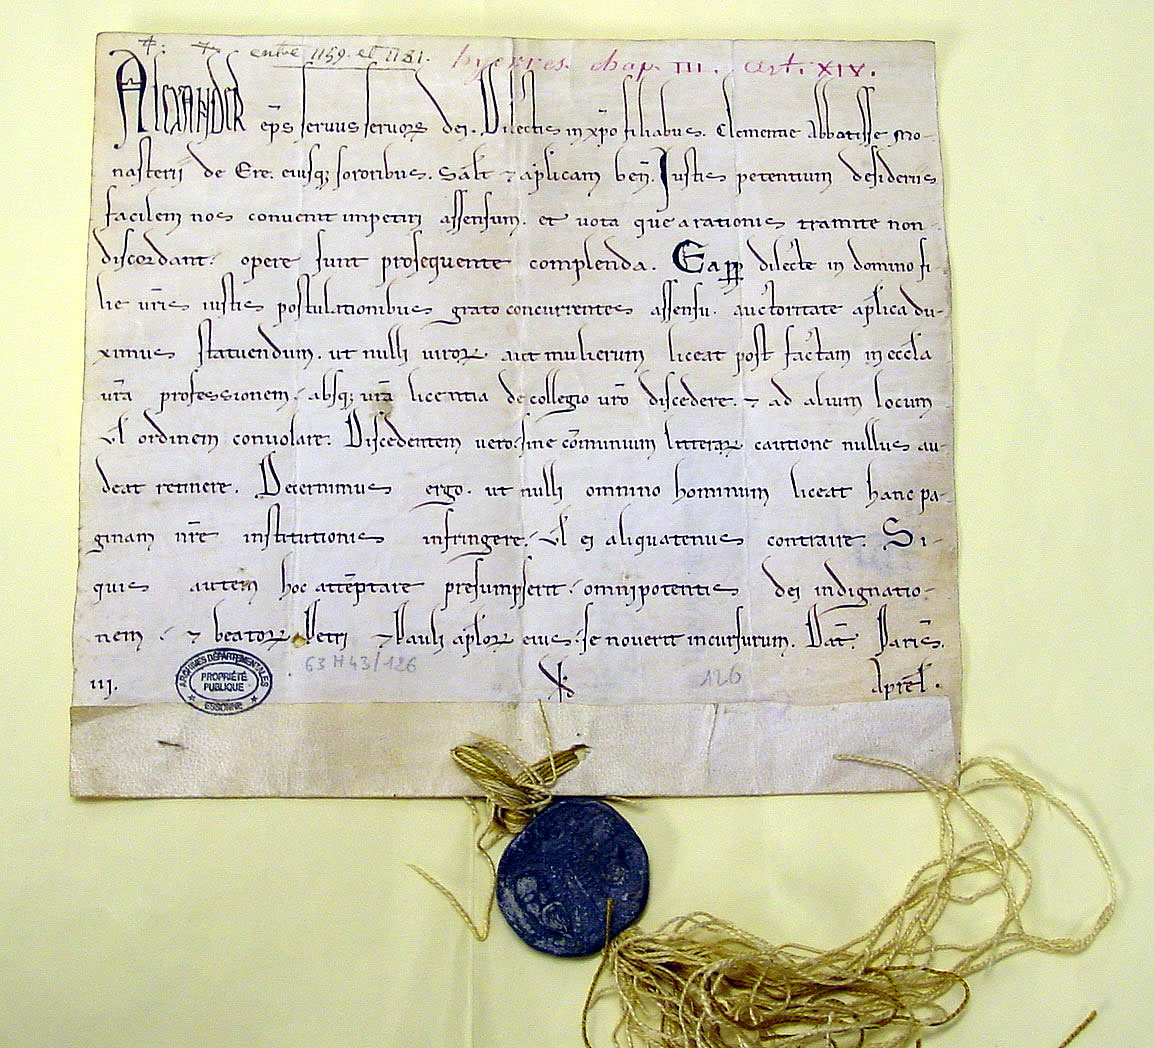 entre 1159. et 1181. hyerres. chap. III. art. XIV.
ALEXANDER ep̄s seruus seruoꝝ dei. Dilectis in xp̄o filiabus. Clementie Abbatisse Mo-
nasterii de Ere. eiusq; sororibus. Sal̄t ⁊ ap̄licam ben̄. Justis petentium desideriis
facilem nos conuenit impetiri assensum. et uota que a rationis tramite non
discordant. opere sunt prosequente complenda. Ea ꝓp̄ dilecte in domino fi-
lie ur̄is iustis postulationibus grato concurrentes assensu. auctoritate ap̄lica du-
ximus statuendum. ut nulli uiroꝝ aut mulierum liceat post factam in eccl̄a
ur̄a professionem. absq; ur̄a licentia de collegio ur̄o discedere. ⁊ ad alium locum
ul̄ ordinem conuolare. Discedentem uero. sine cōmunium litteraꝝ cautione nullus au-
deat retinere. Decernimus ergo. ut nulli omnino hominum liceat hanc pa-
ginam nr̄e institutionis infringere. ul̄ ei aliquatenus contraire. Si-
quis autem hoc attēptare presumpserit. omnipotentis dei indignatio-
nem. ⁊ beatoꝝ Petri ⁊ Pauli ap̄loꝝ eius. se nouerit incursurum. Dat̄. Paris̄.
iii. Aprel̄.
63 H 43/126 126
ARCHIVES DÉPARTEMENTALES
PROPRIÉTÉ
PUBLIQUE
ESSONNE